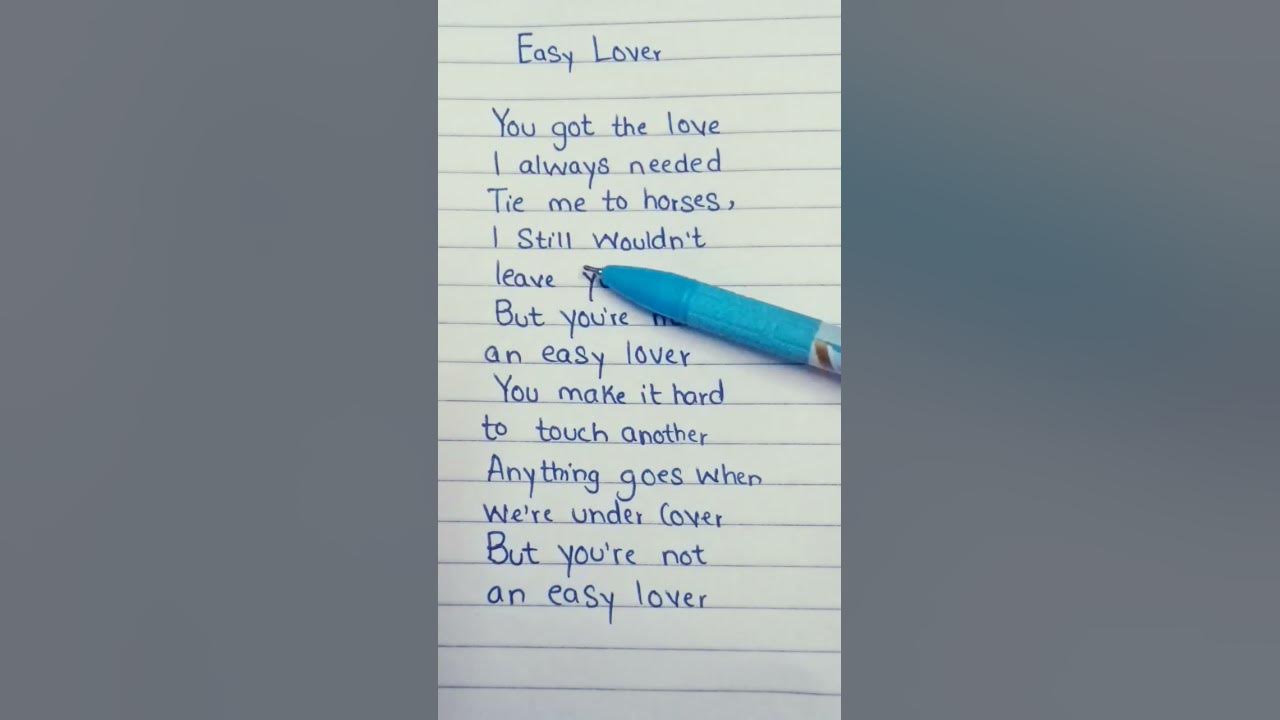 Easy Lover
You got the love
I always needed
Tie me to horses,
I Still Wouldn't
leave
But you're
an easy lover
You make it hard
to touch another
Anything goes when
We're under Cover
But you're not
an easy lover